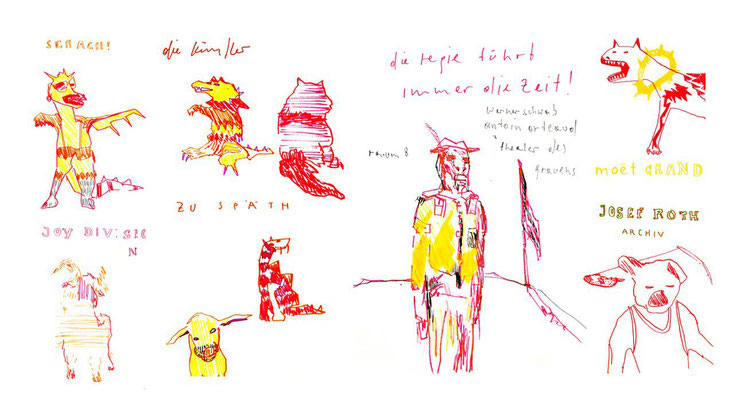 SCHACH!
die künstler
ZU SPÄTH
JOY DIVISIO
N
die regie führt
immer die zeit!
werner schwab
antoin arteaud
theater des
grauens
raum 8
moët GRAND
JOSEF ROTH
ARCHIV